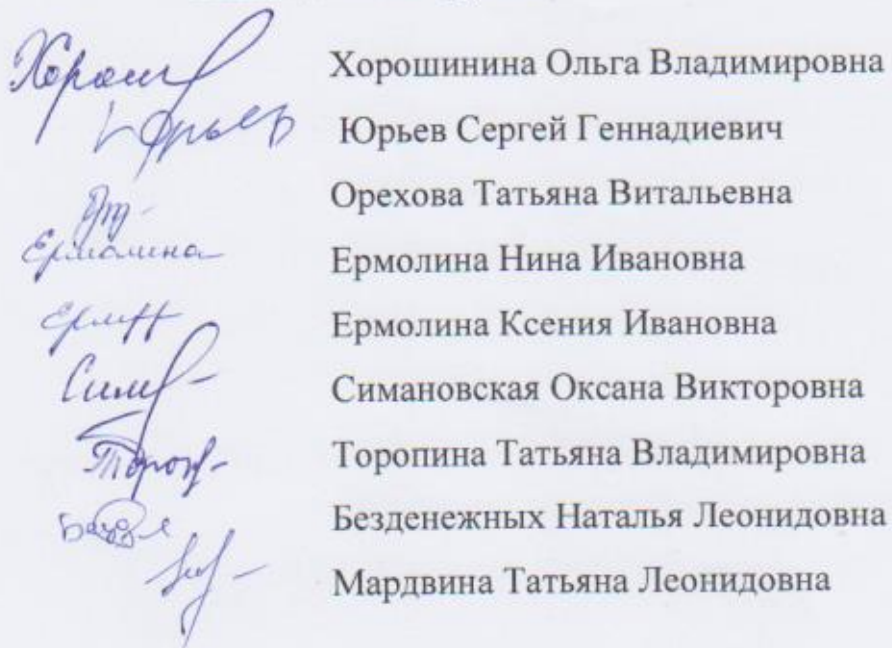 Хорошинина Ольга Владимировна
Юрьев Юрьев Сергей Геннадиевич
Орехова Татьяна Витальевна
Ермолина Ермолина Нина Ивановна
Ермолина Ксения Ивановна
Симановская Оксана Викторовна
Торопина Татьяна Владимировна
Безденежных Наталья Леонидовна
Мардвина Татьяна Леонидовна